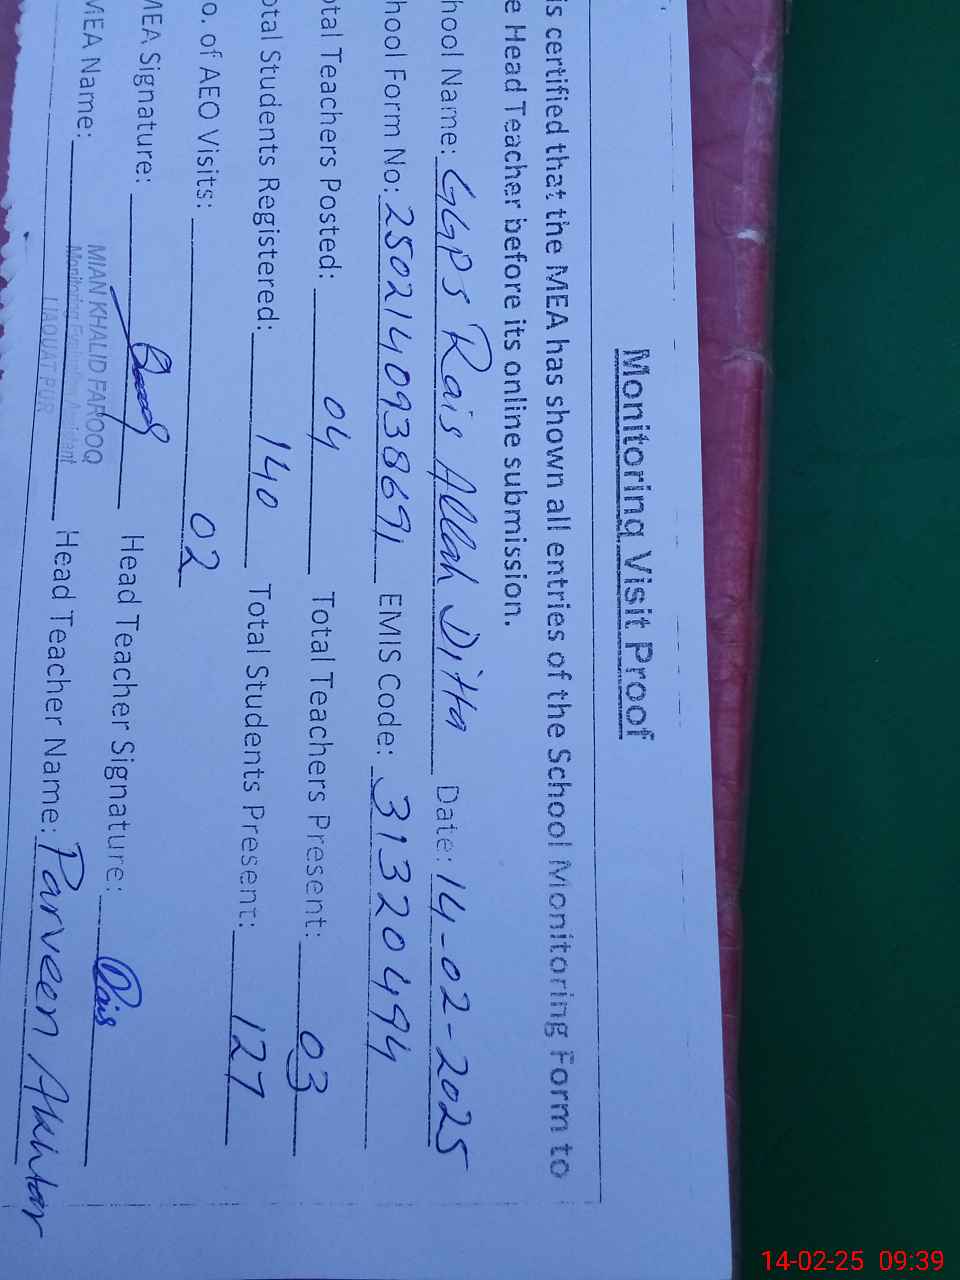 Monitoring Visit Proof
is certified that the MEA has shown all entries of the School Monitoring Form to
e Head Teacher before its online submission.
hool Name: GGPS Rais Allah Ditta Date: 14-02-2025
hool Form No: 2502140938691 EMIS Code: 31320494
otal Teachers Posted: 04 Total Teachers Present: 03
otal Students Registered: 140 Total Students Present: 127
o. of AEO Visits: 02
MEA Signature: Head Teacher Signature: Rais
MEA Name: MIAN KHALID FAROOQ Head Teacher Name: Parveen Akhtar
Monitoring Evaluation Assistant
LIAQUAT PUR
14-02-25 09:39